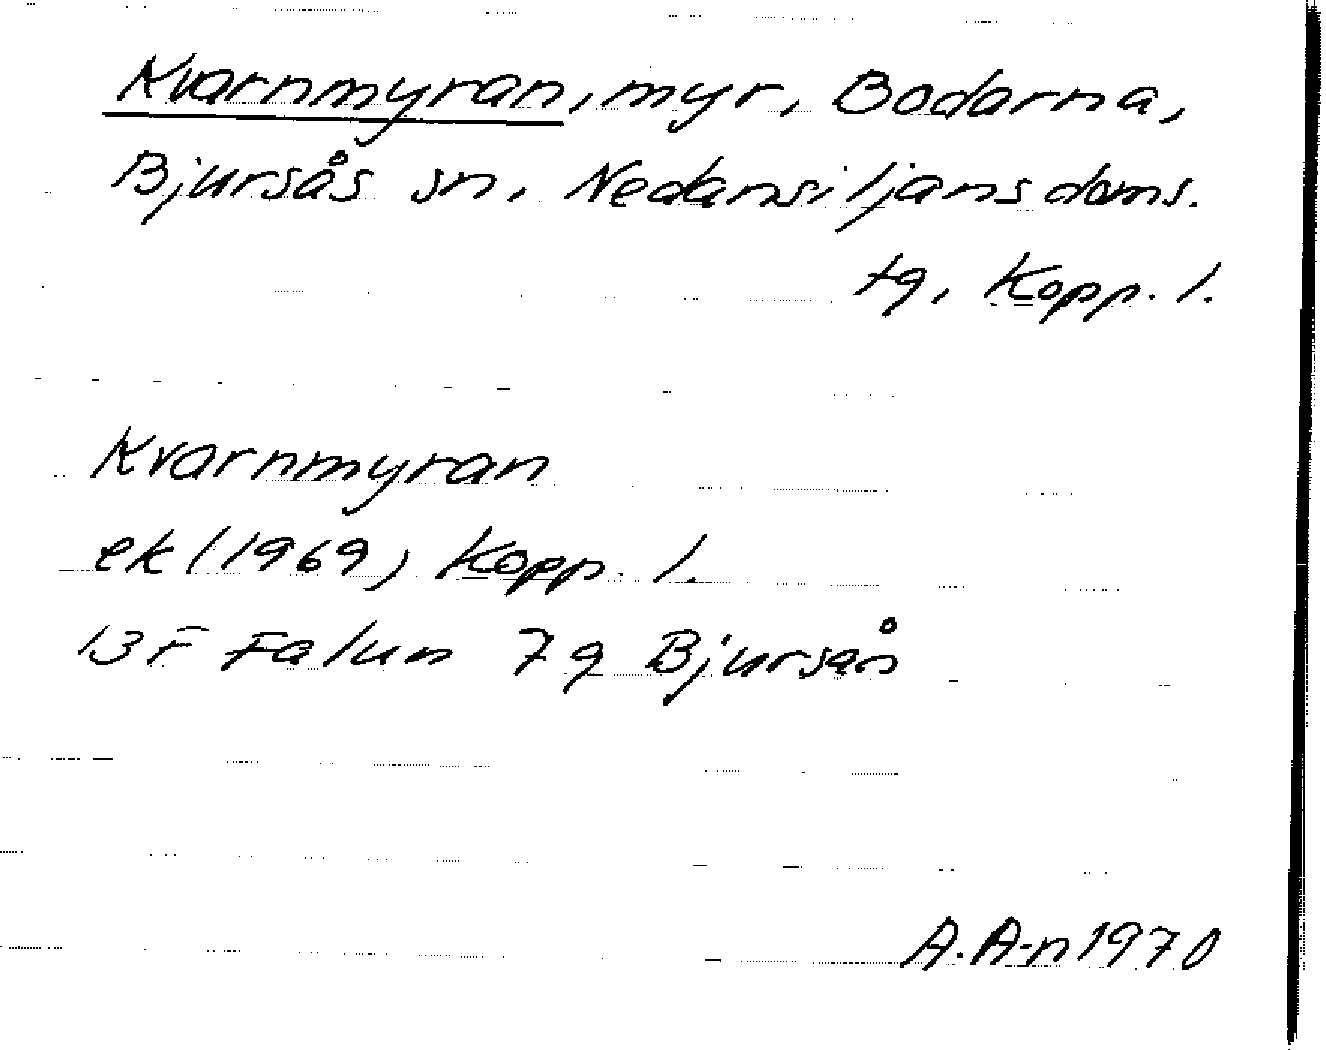 Kvarnmyran, myr, Bodarna,
Bjursås sn, Nedansiljans doms.
tg, Kopp. l.
Kvarnmyran
ek (1969) Kopp. l.
13F Falun 7g Bjursån
A. A-n 1970